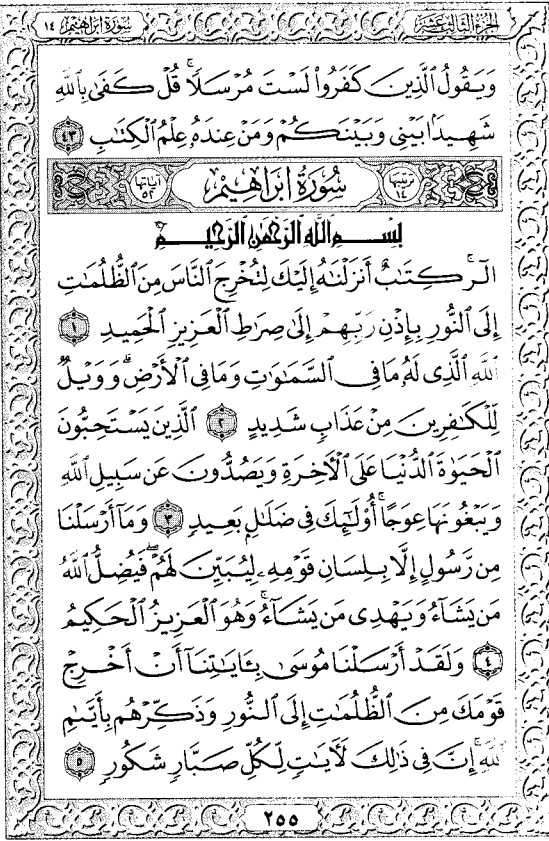 الجزء الثالث عشر سورة ابراهيم ١٤
وَيَقُولُ ٱلَّذِينَ كَفَرُوا۟ لَسْتَ مُرْسَلًا ۚ قُلْ كَفَىٰ بِٱللَّهِ
شَهِيدًۢا بَيْنِى وَبَيْنَكُمْ وَمَنْ عِندَهُۥ عِلْمُ ٱلْكِتَٰبِ ٤٣
ترتيبها ١٤ سُورَةُ إبْرَاهِيمْ آياتها ٥٢
بسم الله الرحمن الرحيم
الٓر ۚ كِتَٰبٌ أَنزَلْنَٰهُ إِلَيْكَ لِتُخْرِجَ ٱلنَّاسَ مِنَ ٱلظُّلُمَٰتِ
إِلَى ٱلنُّورِ بِإِذْنِ رَبِّهِمْ إِلَىٰ صِرَٰطِ ٱلْعَزِيزِ ٱلْحَمِيدِ ١
ٱللَّهِ ٱلَّذِى لَهُۥ مَا فِى ٱلسَّمَٰوَٰتِ وَمَا فِى ٱلْأَرْضِ ۗ وَوَيْلٌ
لِّلْكَٰفِرِينَ مِنْ عَذَابٍ شَدِيدٍ ٢ ٱلَّذِينَ يَسْتَحِبُّونَ
ٱلْحَيَوٰةَ ٱلدُّنْيَا عَلَى ٱلْءَاخِرَةِ وَيَصُدُّونَ عَن سَبِيلِ ٱللَّهِ
وَيَبْغُونَهَا عِوَجًا ۚ أُو۟لَٰٓئِكَ فِى ضَلَٰلٍۭ بَعِيدٍ ٣ وَمَآ أَرْسَلْنَا
مِن رَّسُولٍ إِلَّا بِلِسَانِ قَوْمِهِۦ لِيُبَيِّنَ لَهُمْ ۖ فَيُضِلُّ ٱللَّهُ
مَن يَشَآءُ وَيَهْدِى مَن يَشَآءُ ۚ وَهُوَ ٱلْعَزِيزُ ٱلْحَكِيمُ
٤ وَلَقَدْ أَرْسَلْنَا مُوسَىٰ بِـَٔايَٰتِنَآ أَنْ أَخْرِجْ
قَوْمَكَ مِنَ ٱلظُّلُمَٰتِ إِلَى ٱلنُّورِ وَذَكِّرْهُم بِأَيَّىٰمِ
ٱللَّهِ ۚ إِنَّ فِى ذَٰلِكَ لَءَايَٰتٍ لِّكُلِّ صَبَّارٍ شَكُورٍ ٥
٢٥٥